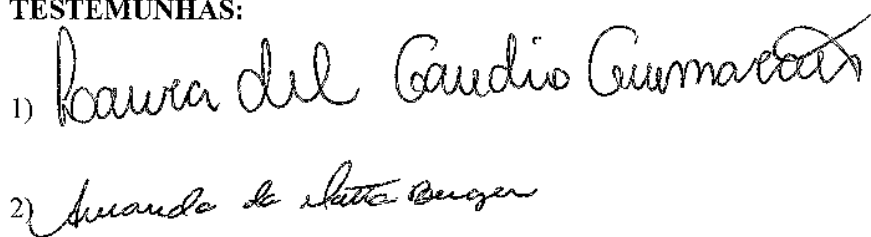 TESTEMUNHAS:
1) Laura del Gaudio Guimarães
2) Amanda da Matta Burger